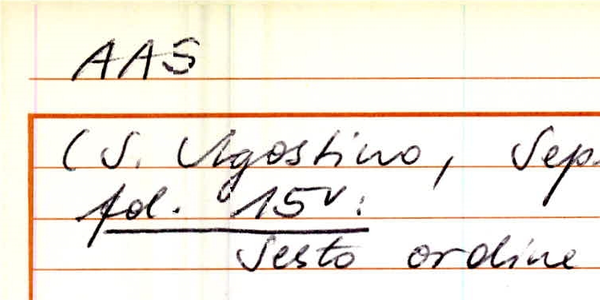 AAS
(S. Agostino, Sep
fol. 15v:
Sesto ordine